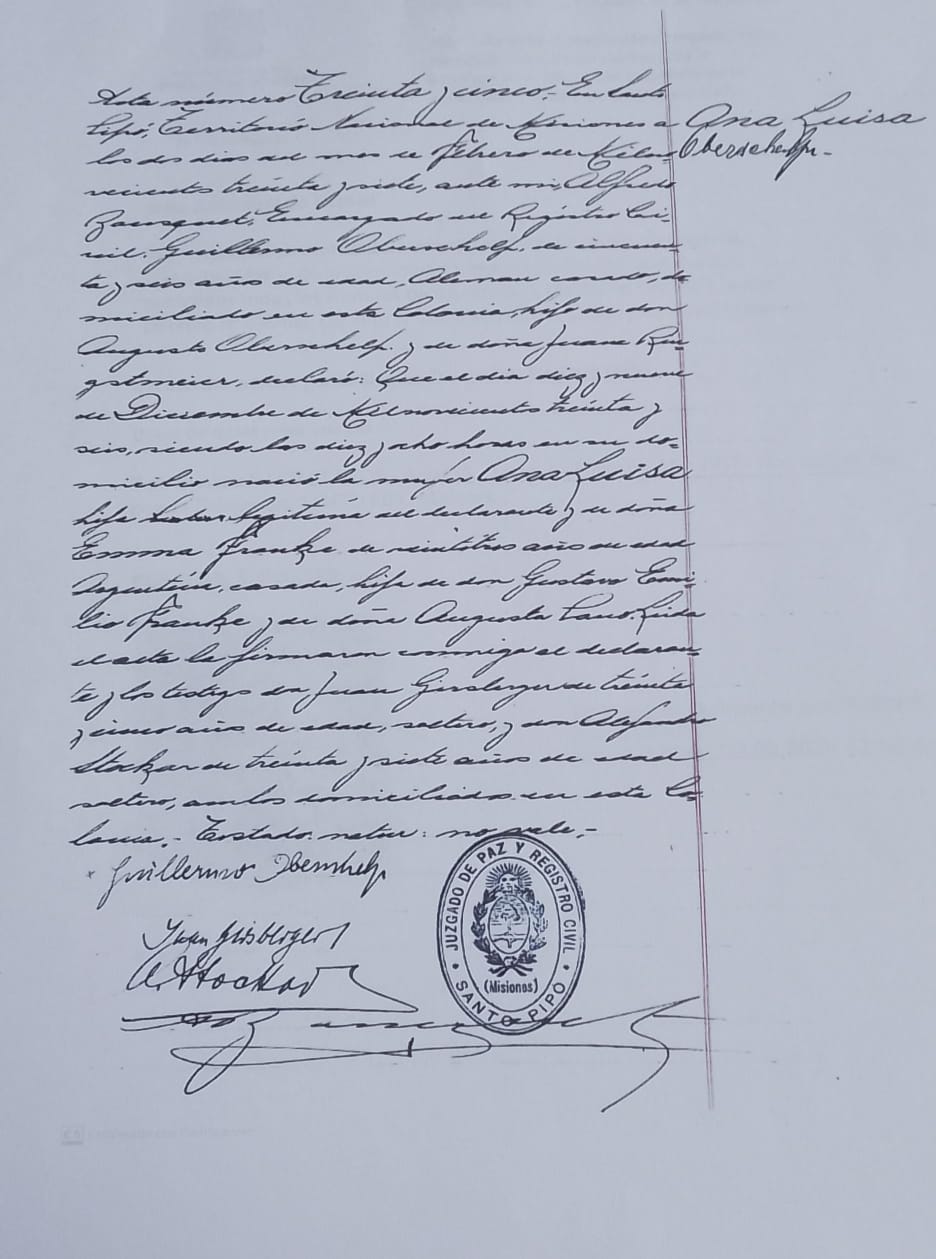 Acta número Treinta y cinco. En Santo
Pipó, Territorio Nacional de Misiones a
los dos dias del mes de Febrero de Mil no-
vecientos treinta y siete, ante mi, Alfredo
Bousquet, Encargado del Registro Ci-
vil. Guillermo Oberschelp. de cincuen-
ta y seis años de edad, Aleman casado, do-
miciliado en esta Colonia, hijo de don
Augusto Oberschelp. y de doña Juana
declaró: Que el dia diez y nueve
de Diciembre de Mil novecientos treinta y
seis, siendo las diez y ocho horas en su do-
micilio nació la mujer Ana Luisa
hija legitima del declarante y de doña
Emma Franke de veintitres años de edad
Argentina, casada, hija de don Gustavo Emi-
lio Franke y de doña Augusta Leida
el acta la firmaron conmigo el declaran-
te y los testigos don Juan Girsberger de treinta
y cinco años de edad, soltero, y don Alejandro
Stockar de treinta y siete años de edad
soltero, ambos domiciliados en esta Co-
lonia. - Testado: no vale. -
Ana Luisa
Oberschelp. -
Guillermo Oberschelp
Juan Girsberger
A. Stockar
JUZGADO DE PAZ Y REGISTRO CIVIL
(Misiones)
SANTO PIPÓ